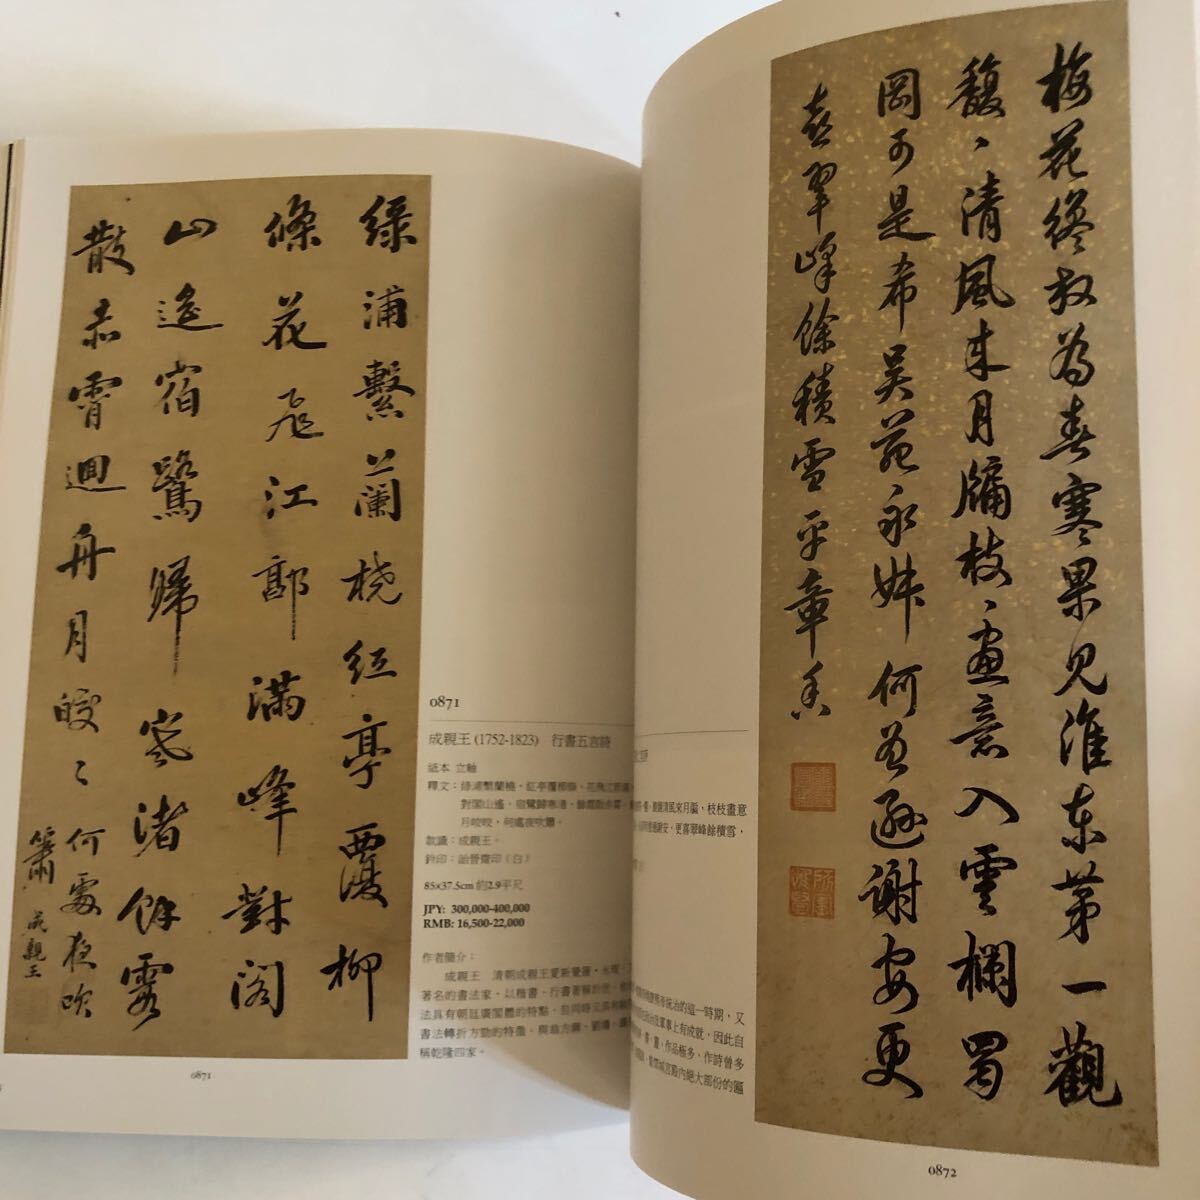 綠浦繫蘭橈紅亭覆柳
條花飛江郭滿峰對閣
山遙宿鷺歸寒渚餘霞
散赤霄迴舟月皎々何處夜吹
簫 成親王
0871
成親王 (1752-1823) 行書五言詩
紙本 立軸
釋文：綠浦繫蘭橈，紅亭覆柳條，花飛江郭滿，
對閣山遙，宿鷺歸寒渚，餘霞散赤霄，
月皎皎，何處夜吹簫。
款識：成親王。
鈐印：詒晉齋印（白）
85x37.5cm 約2.9平尺
JPY: 300,000-400,000
RMB: 16,500-22,000
作者簡介：
成親王 清朝成親王愛新覺羅·永瑆，
著名的書法家，以楷書、行書著稱於世，
法具有朝廷廣閣體的特點，
書法轉折方勁的特徵，與翁方綱、劉墉、
稱乾隆四家。
0871
梅花纔放為春寒果見淮東第一觀
馥々清風來月牖枝々畫意入雲欄蜀
岡可是希吳苑永叔何曾遜謝安更
喜翠峰餘積雪平章香
清風來月牖，枝枝畫意
謝安，更喜翠峰餘積雪，
統治的這一時期，又
軍事上有成就，因此自
作品極多，作詩曾多
宮殿內絕大部份的匾
0872